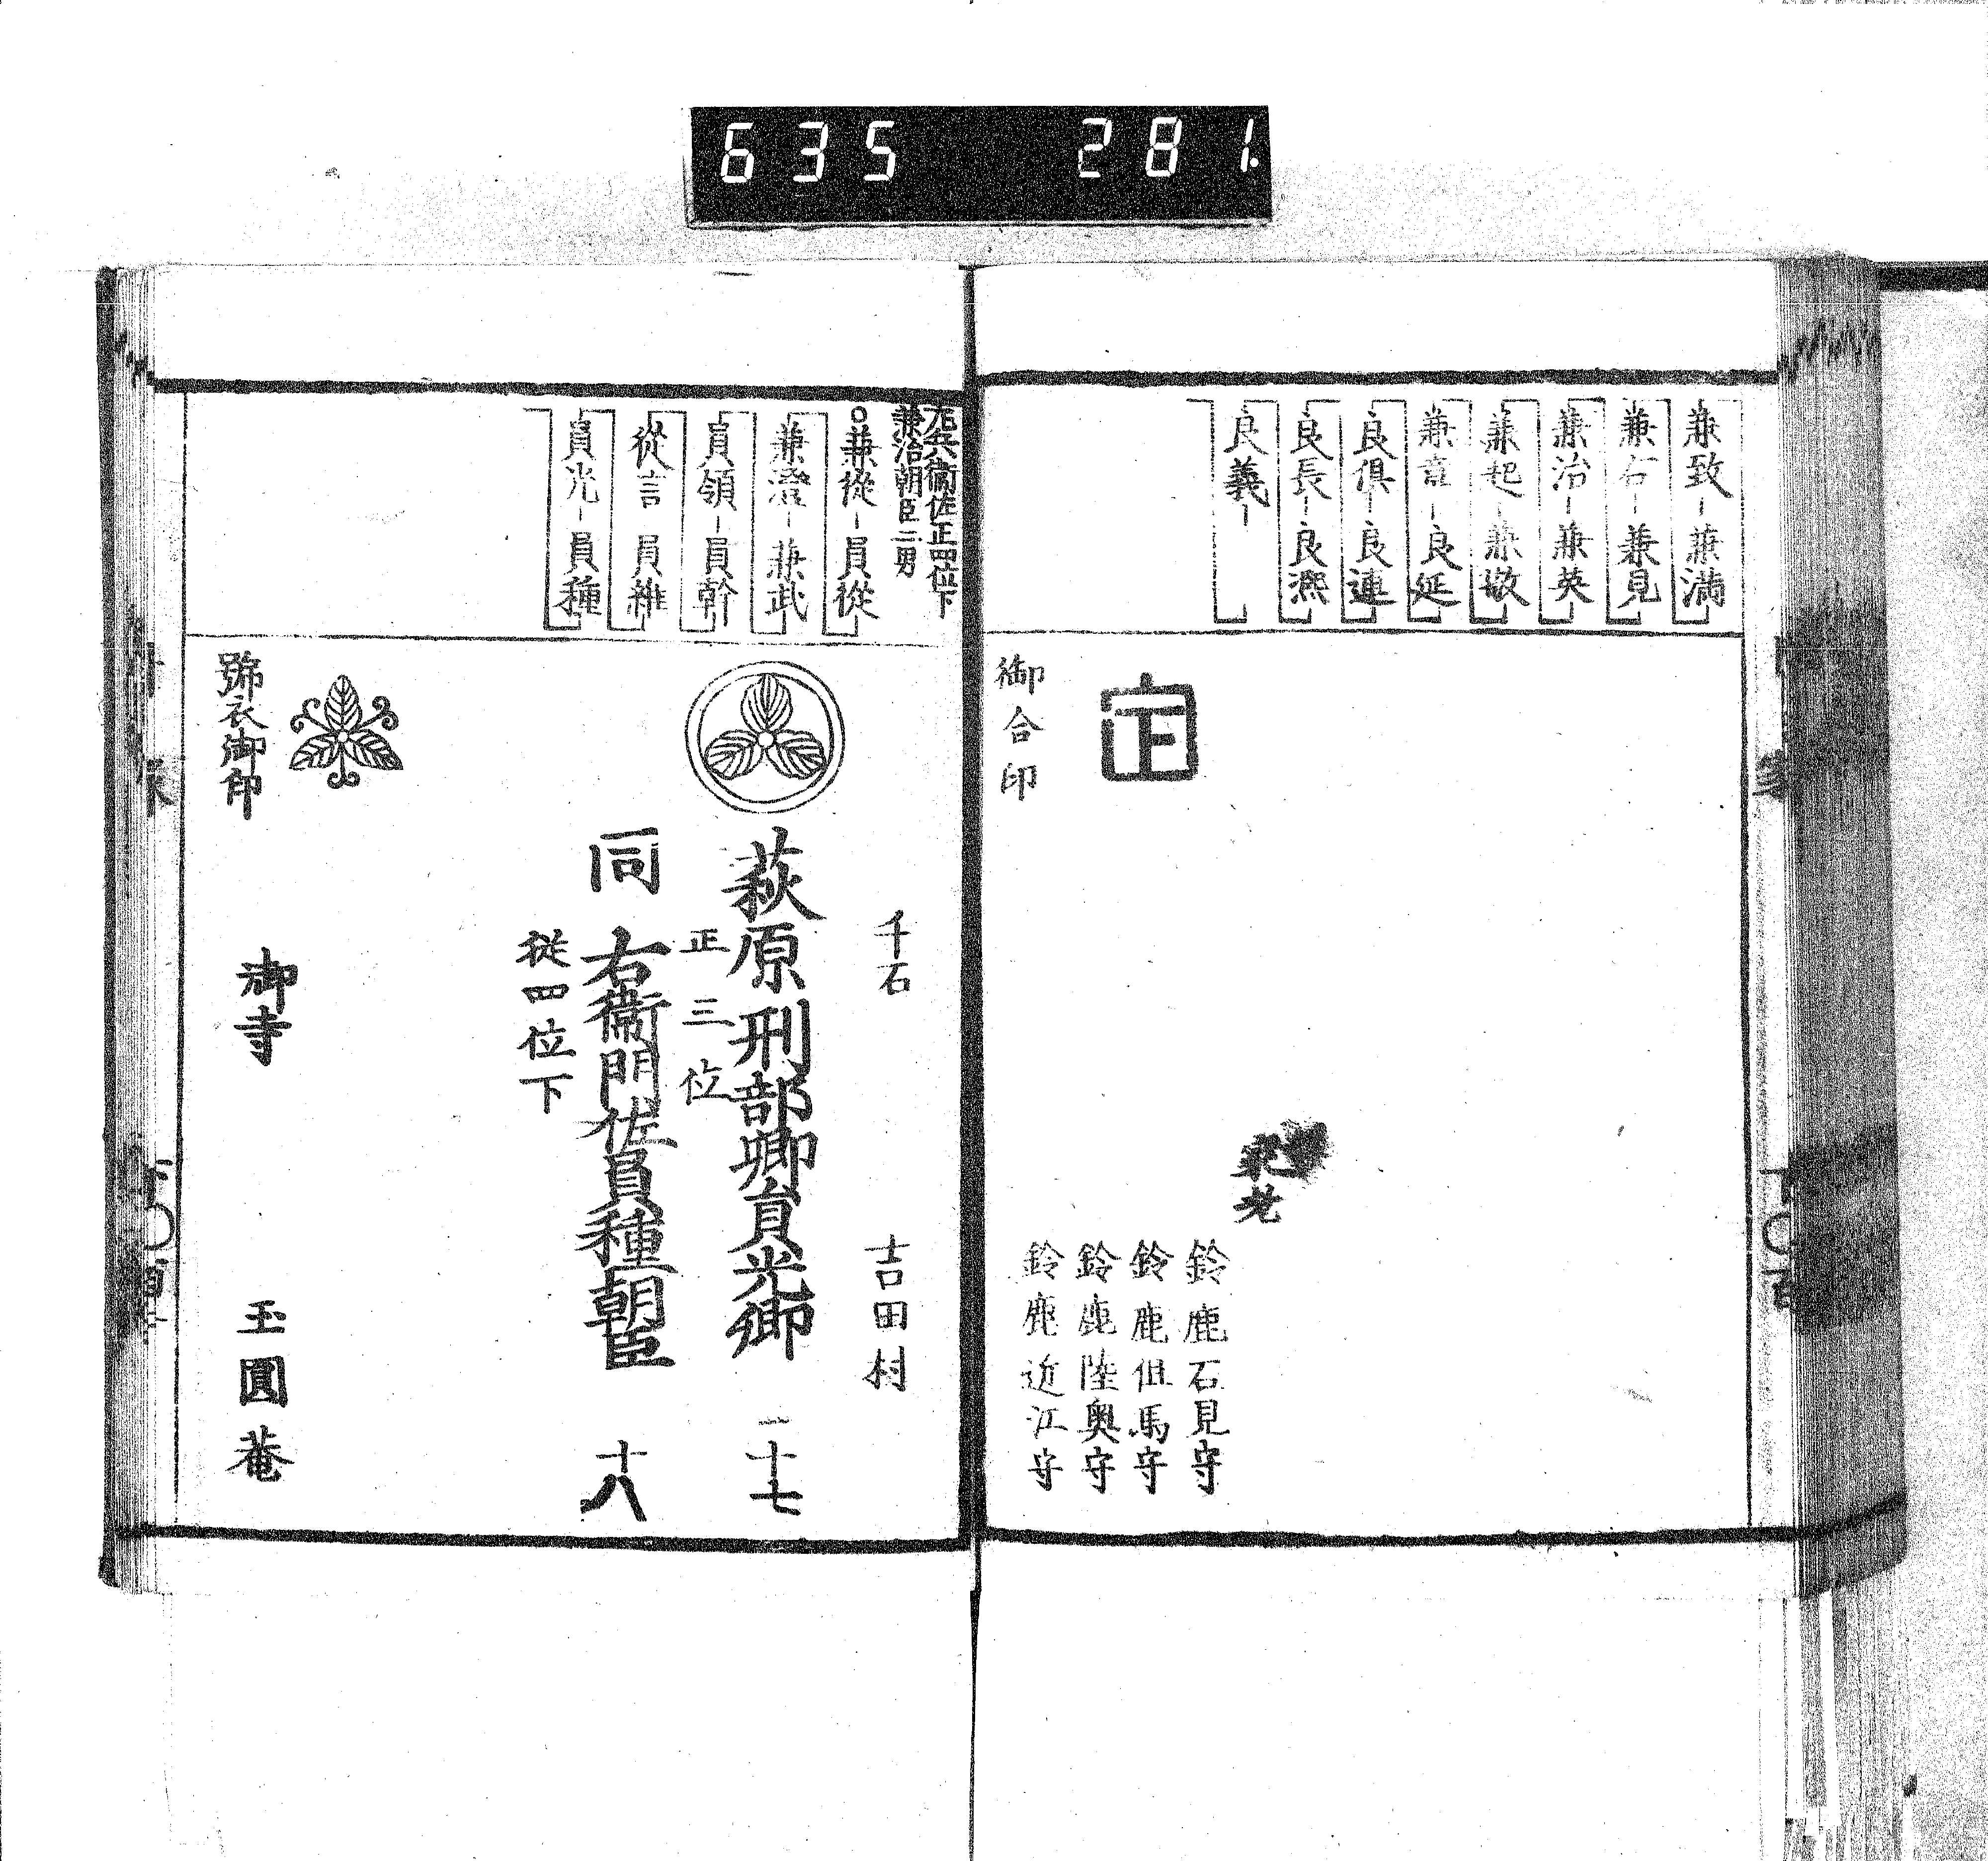 635 281.
兼致-兼満
兼右-兼見
兼治-兼英
兼起-兼敬
兼章-良延
良倶-良連
良長-良凞
良義-
御合印
家老
鈴鹿石見守
鈴鹿但馬守
鈴鹿陸奥守
鈴鹿近江守
左兵衞佐正四位下
兼治朝臣二男
○兼從-員從
兼澄-兼武
員領-員幹
從言 員維
員光-員種
千石 吉田村
萩原刑部卿員光卿 二十七
正三位
同 右衞門佐員種朝臣 十八
從四位下
號衣御印
御寺 玉圓菴